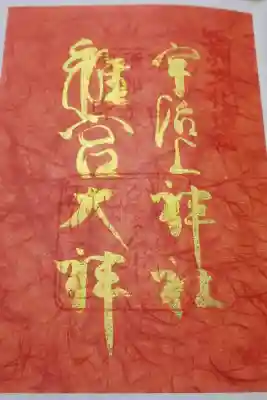 宇治上神社
離宮大神